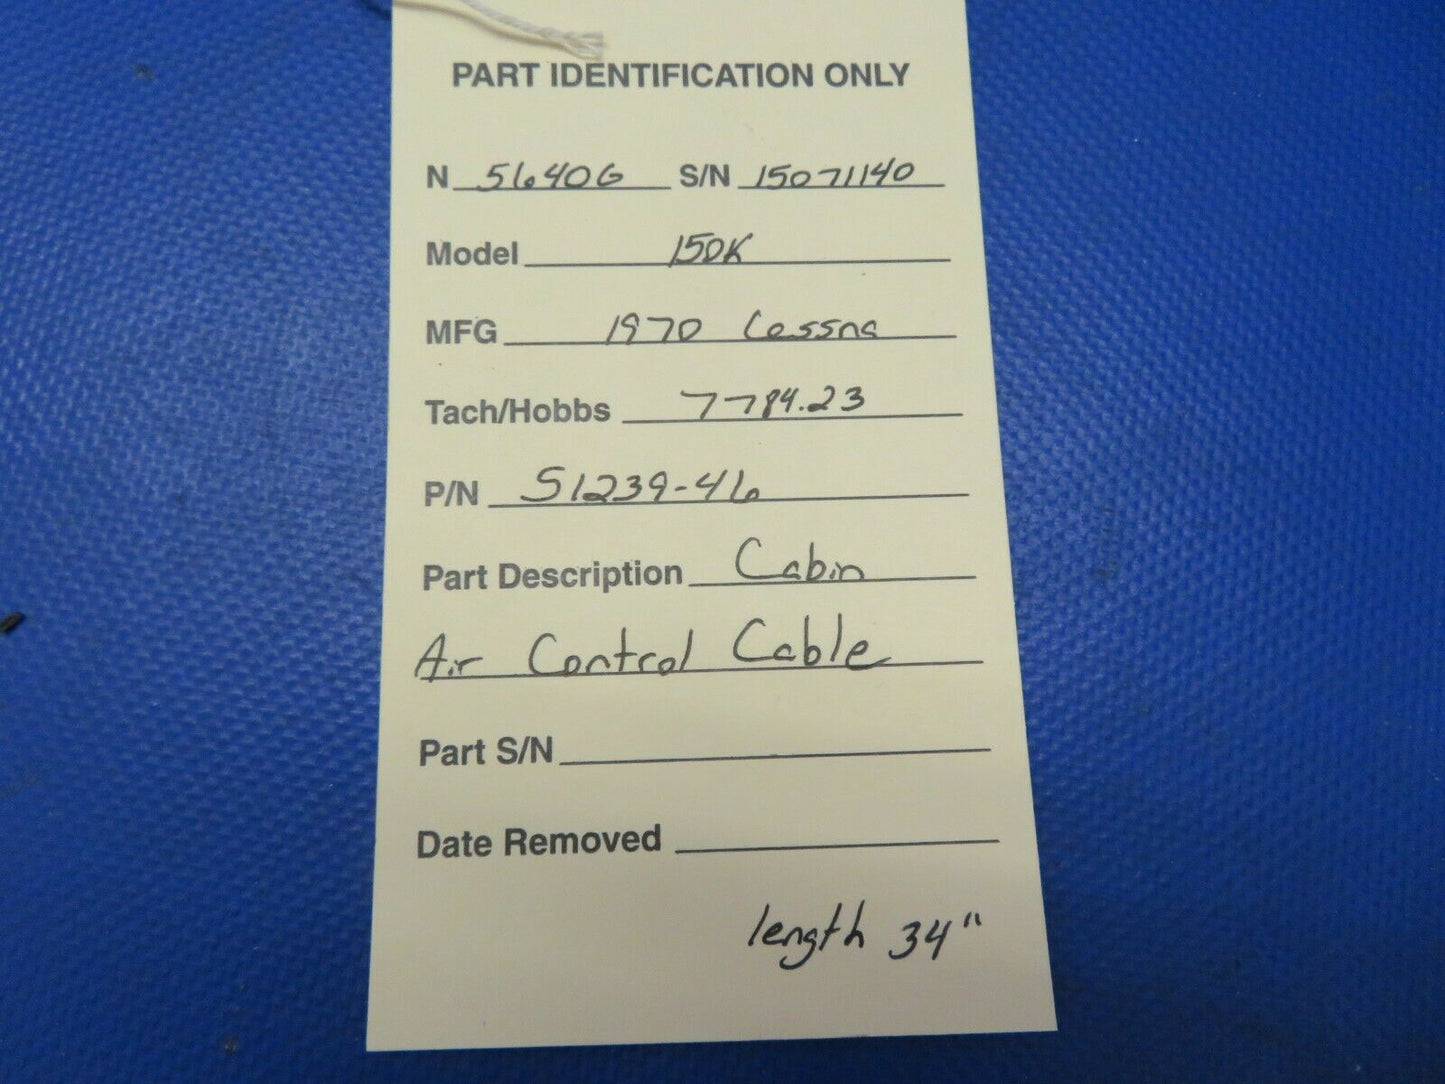 PART IDENTIFICATION ONLY
N 5640G S/N 15071140
Model 150K
MFG 1970 Cessna
Tach/Hobbs 7784.23
P/N S1239-46
Part Description Cabin
Air Control Cable
Part S/N
Date Removed
length 34"